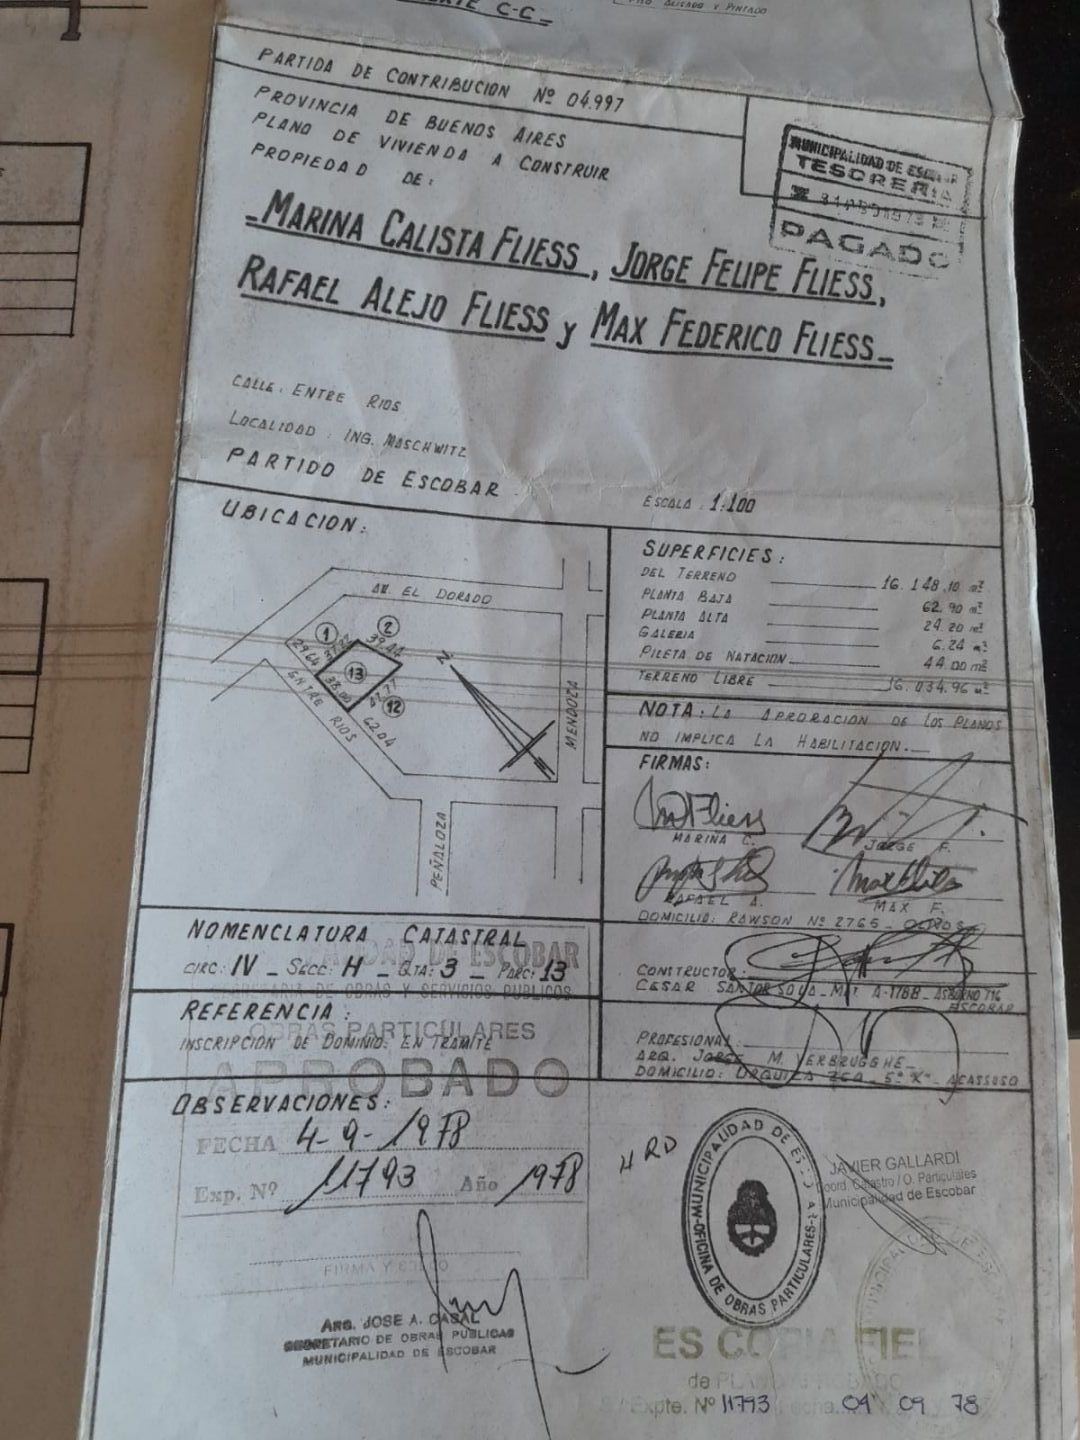 PARTIDA DE CONTRIBUCION Nº 04.997
PROVINCIA DE BUENOS AIRES
PLANO DE VIVIENDA A CONSTRUIR
PROPIEDAD DE:
MUNICIPALIDAD DE
TESORERIA
PAGADO
MARINA CALISTA FLIESS, JORGE FELIPE FLIESS,
RAFAEL ALEJO FLIESS y MAX FEDERICO FLIESS
CALLE: ENTRE RIOS
LOCALIDAD: ING. MASCHWITZ
PARTIDO DE ESCOBAR
ESCALA: 1:100
UBICACION:
AV. EL DORADO
1
2
39.44
29.64
13
38.00
12
ENTRE RIOS
62.04
N
MENDOZA
PEÑALOZA
SUPERFICIES:
DEL TERRENO 16.148,10 m²
PLANTA BAJA 62.90 m²
PLANTA ALTA 24.20 m²
GALERIA 6.24 m²
PILETA DE NATACION 44.00 m²
TERRENO LIBRE 16.034.96 m²
NOTA: LA APROBACION DE LOS PLANOS
NO IMPLICA LA HABILITACION.
FIRMAS:
MARINA C.
JORGE F.
RAFAEL A.
MAX F.
DOMICILIO: RAWSON Nº 2765 - OLIVOS
CONSTRUCTOR:
CESAR MAT A-1768
ESCOBAR
PROFESIONAL:
ARQ. JORGE M. VERBRUGGHE
DOMICILIO: URQUIZA 5º "K" - ACASSUSO
NOMENCLATURA CATASTRAL
CIRC: IV - SECC: H - QTA: 3 - PARC: 13
DE ESCOBAR
SECRETARIA DE OBRAS Y SERVICIOS PUBLICOS
REFERENCIA:
INSCRIPCION DE DOMINIO: EN TRAMITE
OBRAS PARTICULARES
APROBADO
OBSERVACIONES:
FECHA 4-9-1978
Exp. Nº 11793 Año 1978
FIRMA Y SELLO
ARQ. JOSE A. CASAL
SECRETARIO DE OBRAS PUBLICAS
MUNICIPALIDAD DE ESCOBAR
MUNICIPALIDAD DE ESCOBAR
OFICINA DE OBRAS PARTICULARES
JAVIER GALLARDI
Coord. Catastro / O. Particulares
Municipalidad de Escobar
ES COPIA FIEL
de PLANO APROBADO
Expte. Nº 11793 Fecha 04 09 78